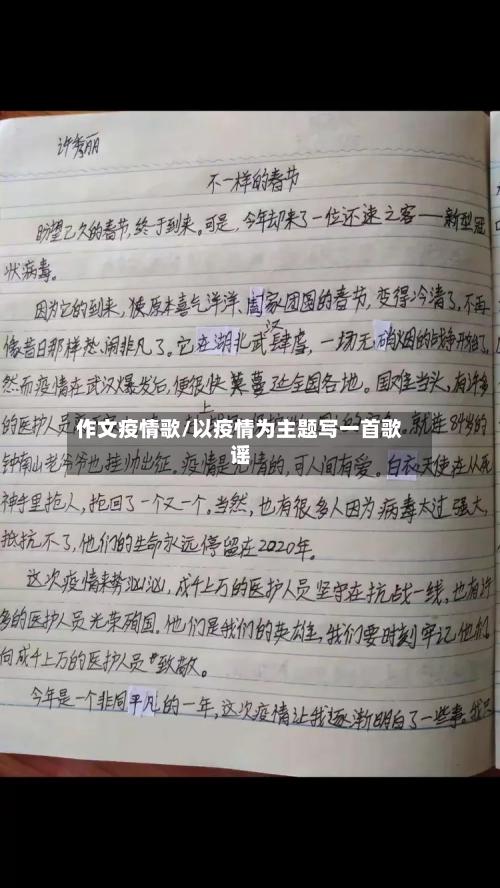 许秀丽
不一样的春节
盼望已久的春节,终于到来。可是,今年却来了一位不速之客——新型冠
状病毒。
因为它的到来,使原本喜气洋洋、阖家团圆的春节,变得冷清了,不再
像昔日那样热闹非凡了。它在湖北武汉肆虐,一场无硝烟的战争开始了。
然而疫情在武汉爆发后,便很快蔓延全国各地。国难当头,有许多
的医护人员
上
就连84岁的
作文疫情歌/以疫情为主题写一首歌
谣
钟南山老爷爷也挂帅出征。疫情是无情的,可人间有爱。白衣天使在从死
神手里抢人,抢回了一个又一个。当然,也有很多人因为病毒太过强大,
抵抗不了,他们的生命永远停留在2020年。
这次疫情来势汹汹,成千上万的医护人员坚守在抗战一线,也有许
多的医护人员光荣殉国。他们是我们的英雄,我们要时刻牢记他们,
向成千上万的医护人员致敬。
今年是一个非同平凡的一年,这次疫情让我逐渐明白了一些事。我